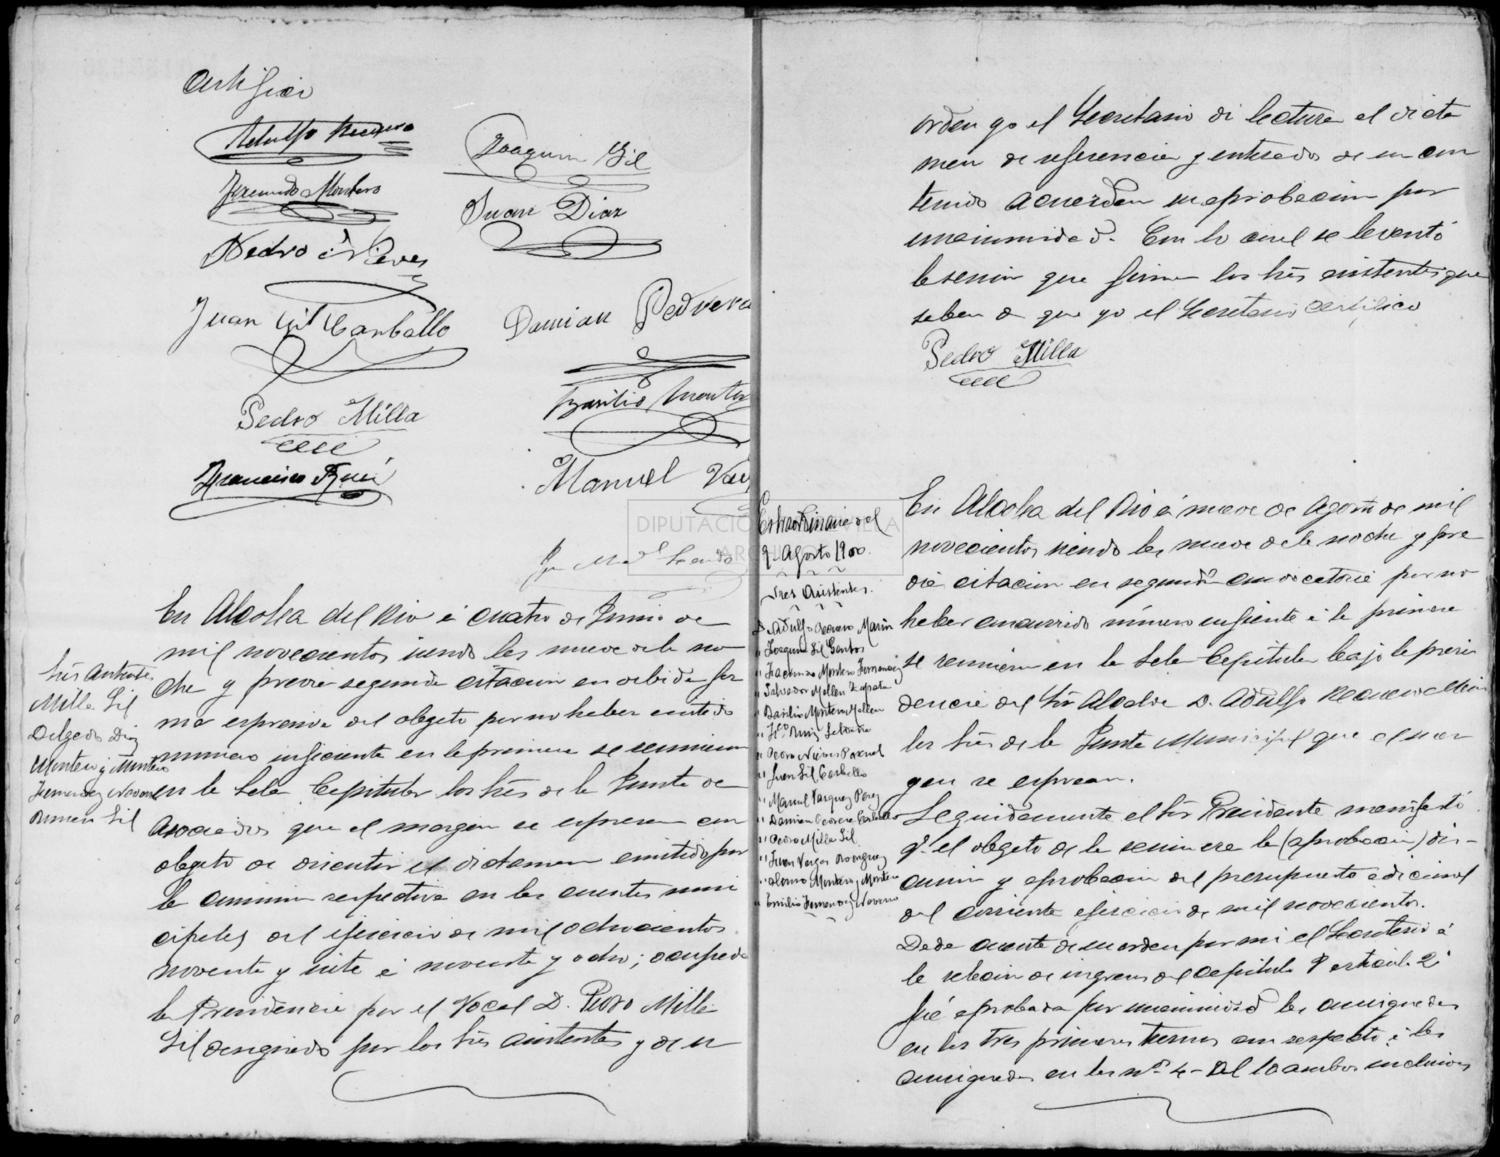 Certifico
Adolfo Recuero
Joaquin Gil
Facundo Montero
Juan Diaz
Pedro Nieves
Juan Gil Carballo
Damian Pedrera
Pedro Milla
Basilio Monter
Francisco Ruiz
Manuel
En Alcolea del Rio á cuatro de Junio de
mil novecientos siendo las nueve de la no
che y previa segunda citacion en debida for
ma espresiva del objeto por no haber
numero suficiente en la primera se reunieron
en la Sala Capitular los Srs de la Junta de
Asociados que al margen se espresan con
objeto de discutir el dictamen emitido por
la comision respectiva en las cuentas muni
cipales del ejercicio de mil ochocientos
noventa y siete á noventa y ocho; ocupada
la Presidencia por el Vocal D. Pedro Milla
Gil designado por los Srs asistentes y de su
Srs Asistes
Milla Gil
Delgado Diaz
Montero y Montero
Jimenez Navarro
Gil
orden yo el Secretario di lectura al dicta
men de referencia y enterados de su con
tenido acuerdan su aprobacion por
unanimidad. Con lo cual se levantó
la sesion que firman los Srs asistentes que
saben de que yo el Secretario certifico
Pedro Milla
Extraordinaria del
9 Agosto 1900
Sres Asistentes
D. Adolfo Recuero Marin
" Joaquin Gil Santos
" Facundo Montero Fernandez
" Salvador Millan Zapata
" Basilio Montero Millan
" Fco Ruiz
" Pedro Nieves
" Juan Gil Carballo
" Manuel Vazquez Perez
" Damian Pedrera Carballo
" Pedro Milla Gil
" Juan Vargas Rodriguez
" Alonso Montero y Montero
" Emilio Jimenez y Navarro
En Alcolea del Rio á nueve de Agosto de mil
novecientos siendo las nueve de la noche y pre
via citacion en segunda convocatoria por no
haber concurrido número suficiente á la primera
se reunieron en la Sala Capitular bajo la presi
dencia del Sr Alcalde D. Adolfo Recuero Marin
los Srs de la Junta Municipal que al mar
gen se espresan.
Seguidamente el Sr Presidente manifestó
q. el objeto de la sesion era la (aprobacion) dis-
cusion y aprobacion del presupuesto adicional
del corriente ejercicio de mil novecientos.
Dada cuenta de su orden por mi el Secretario á
la relacion de ingresos del capitulo 8 articulo 2º
fué aprobada por unanimidad las consignadas
en los tres primeros terminos con respecto á las
consignadas en los nº 4 - al 10 ambos inclusives
DIPUTACIÓN DE SEVILLA
ARCHIVO